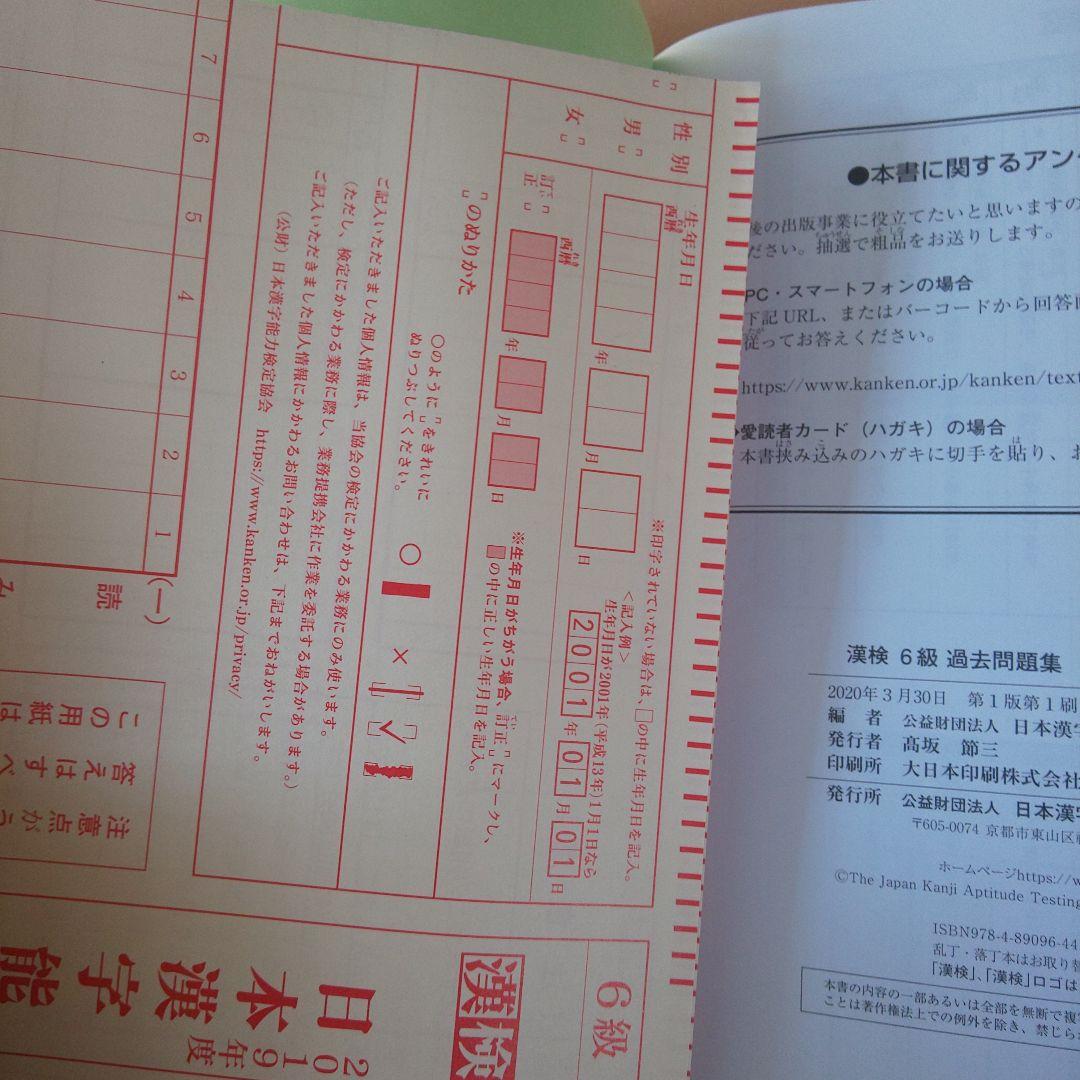 ●本書に関するアン
後の出版事業に役立てたいと思いますの
ださい。抽選で粗品をお送りします。
PC・スマートフォンの場合
下記URL、またはバーコードから回答
従ってお答えください。
https://www.kanken.or.jp/kanken/text
愛読者カード（ハガキ）の場合
本書挟み込みのハガキに切手を貼り、お
漢検 6級 過去問題集
2020年3月30日 第1版第1刷
編 者 公益財団法人 日本漢字
発行者 髙坂 節三
印刷所 大日本印刷株式会社
発行所 公益財団法人 日本漢字
〒605-0074 京都市東山区
ホームページhttps://w
©The Japan Kanji Aptitude Testing
ISBN978-4-89096-44
乱丁・落丁本はお取り替
「漢検」、「漢検」ロゴは
本書の内容の一部あるいは全部を無断で複
ことは著作権法上での例外を除き、禁じら
性別
男
女
生年月日
西暦
年 月 日
※印字されていない場合は、□の中に生年月日を記入。
＜記入例＞
生年月日が2001年(平成13年)1月1日なら
2001年01月01日
訂正
西暦
年 月 日
※生年月日がちがう場合、訂正[ ]にマークし、
の中に正しい生年月日を記入。
[ ]のぬりかた
○のように[ ]をきれいに
ぬりつぶしてください。
○
×
ご記入いただきました個人情報は、当協会の検定にかかわる業務にのみ使います。
(ただし、検定にかかわる業務に際し、業務提携会社に作業を委託する場合があります。)
ご記入いただきました個人情報にかかわるお問い合わせは、下記までおねがいします。
(公財)日本漢字能力検定協会 https://www.kanken.or.jp/privacy/
6級
漢検
2019年度
日本漢字能
(一)
読
み
1
2
3
4
5
6
7
注意点がう
答えはすべ
この用紙は